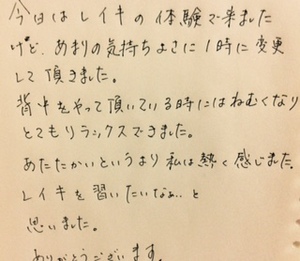 今日はレイキの体験で来ました
けど、あまりの気持ちよさに1時に変更
して頂きました。
背中をやって頂いている時にはねむくなり
とてもリラックスできました。
あたたかいというより私は熱く感じました。
レイキを習いたいなぁ..と
思いました。
ありがとうございます。